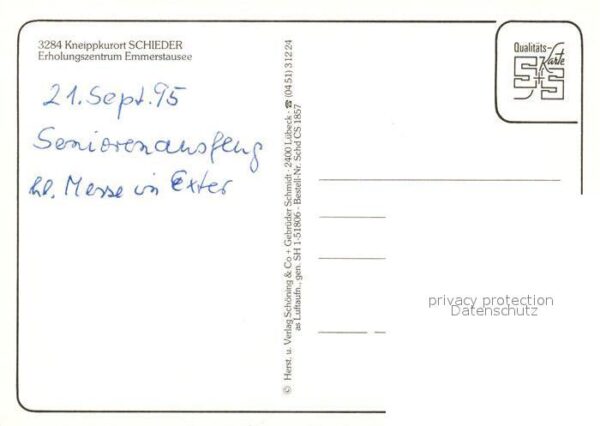 3284 Kneippkurort SCHIEDER
Erholungszentrum Emmerstausee
21. Sept. 95
Seniorenausflug
hl. Messe in Exter
© Herst. u. Verlag Schöning & Co + Gebrüder Schmidt · 2400 Lübeck · ☎ (04 51) 3 12 24
as Luftaufn., gen. SH 1-51806 · Bestell-Nr. Schd CS 1857
Qualitäts-
Karte
S+S
privacy protection
Datenschutz